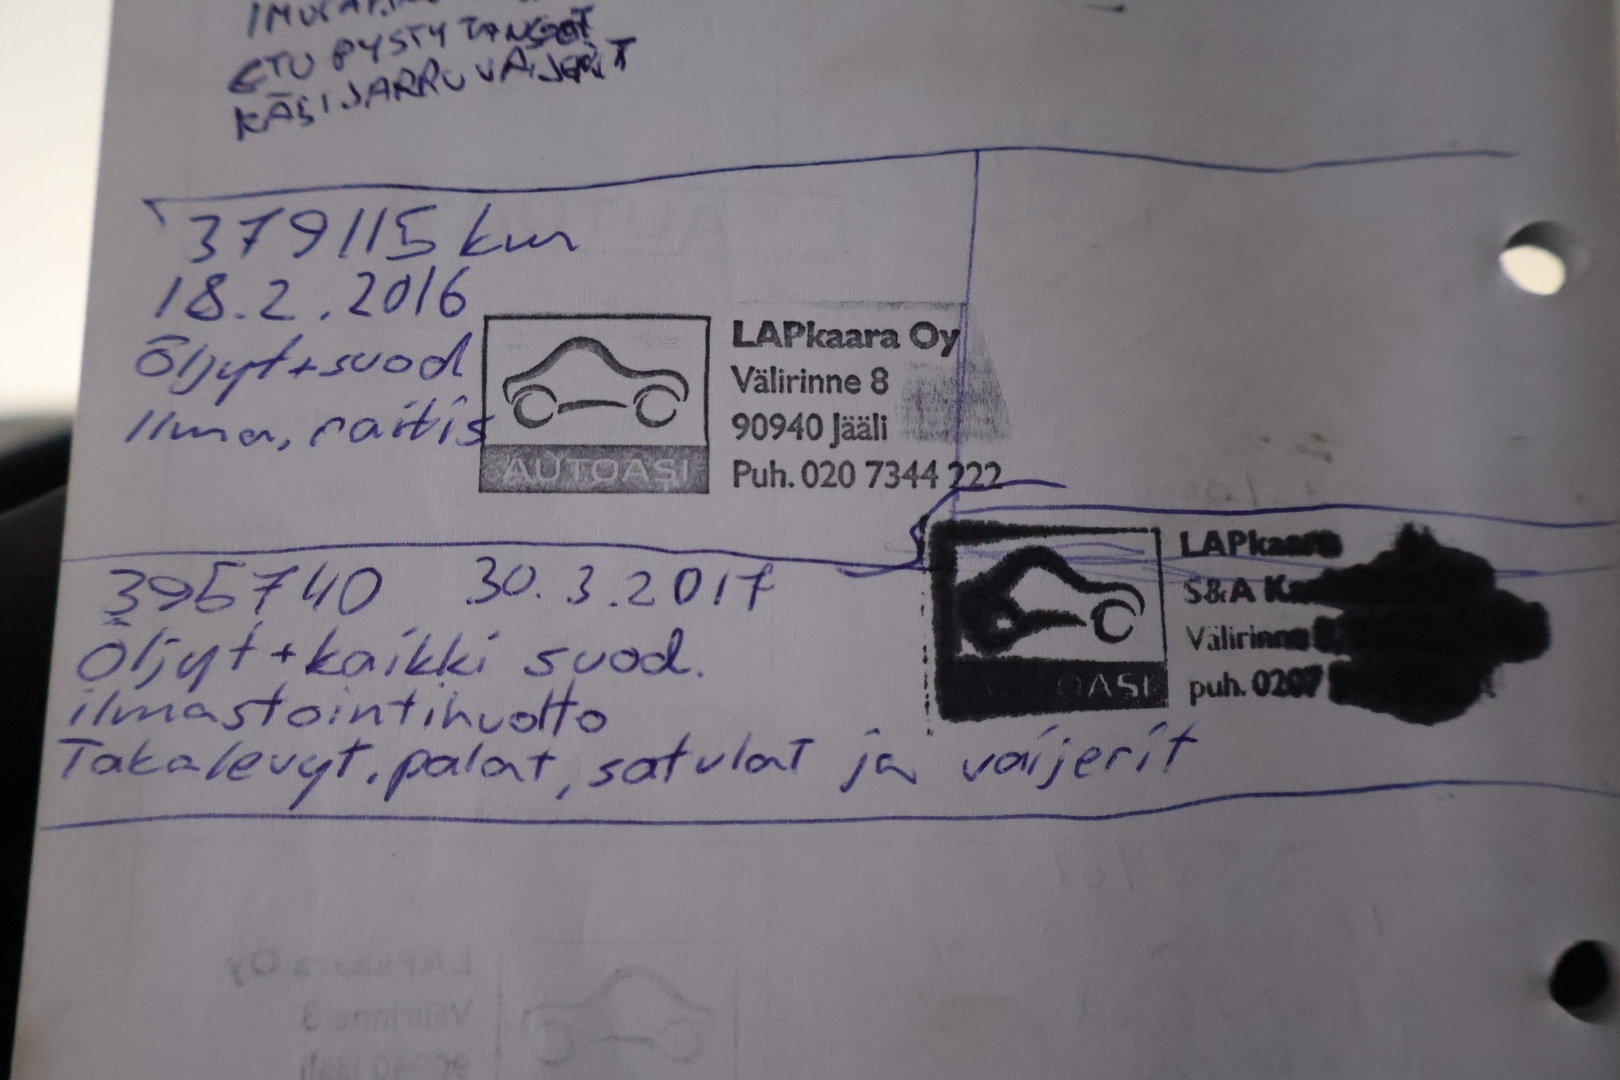 ETU PYSTY TANGOT
KÄSIJARRU VAIJERIT
379115 km
18.2.2016
Öljyt + suod
Ilma, raitis
AUTOASI
LAPkaara Oy
Välirinne 8
90940 Jääli
Puh. 020 7344 222
395740 30.3.2017
Öljyt + kaikki suod.
ilmastointihuolto
Takalevyt, palat, satulat ja vaijerit
LAPkaara
S&A
Välirinne
puh. 0207
LAPkaara Oy
Välirinne 8
90940 Jääli